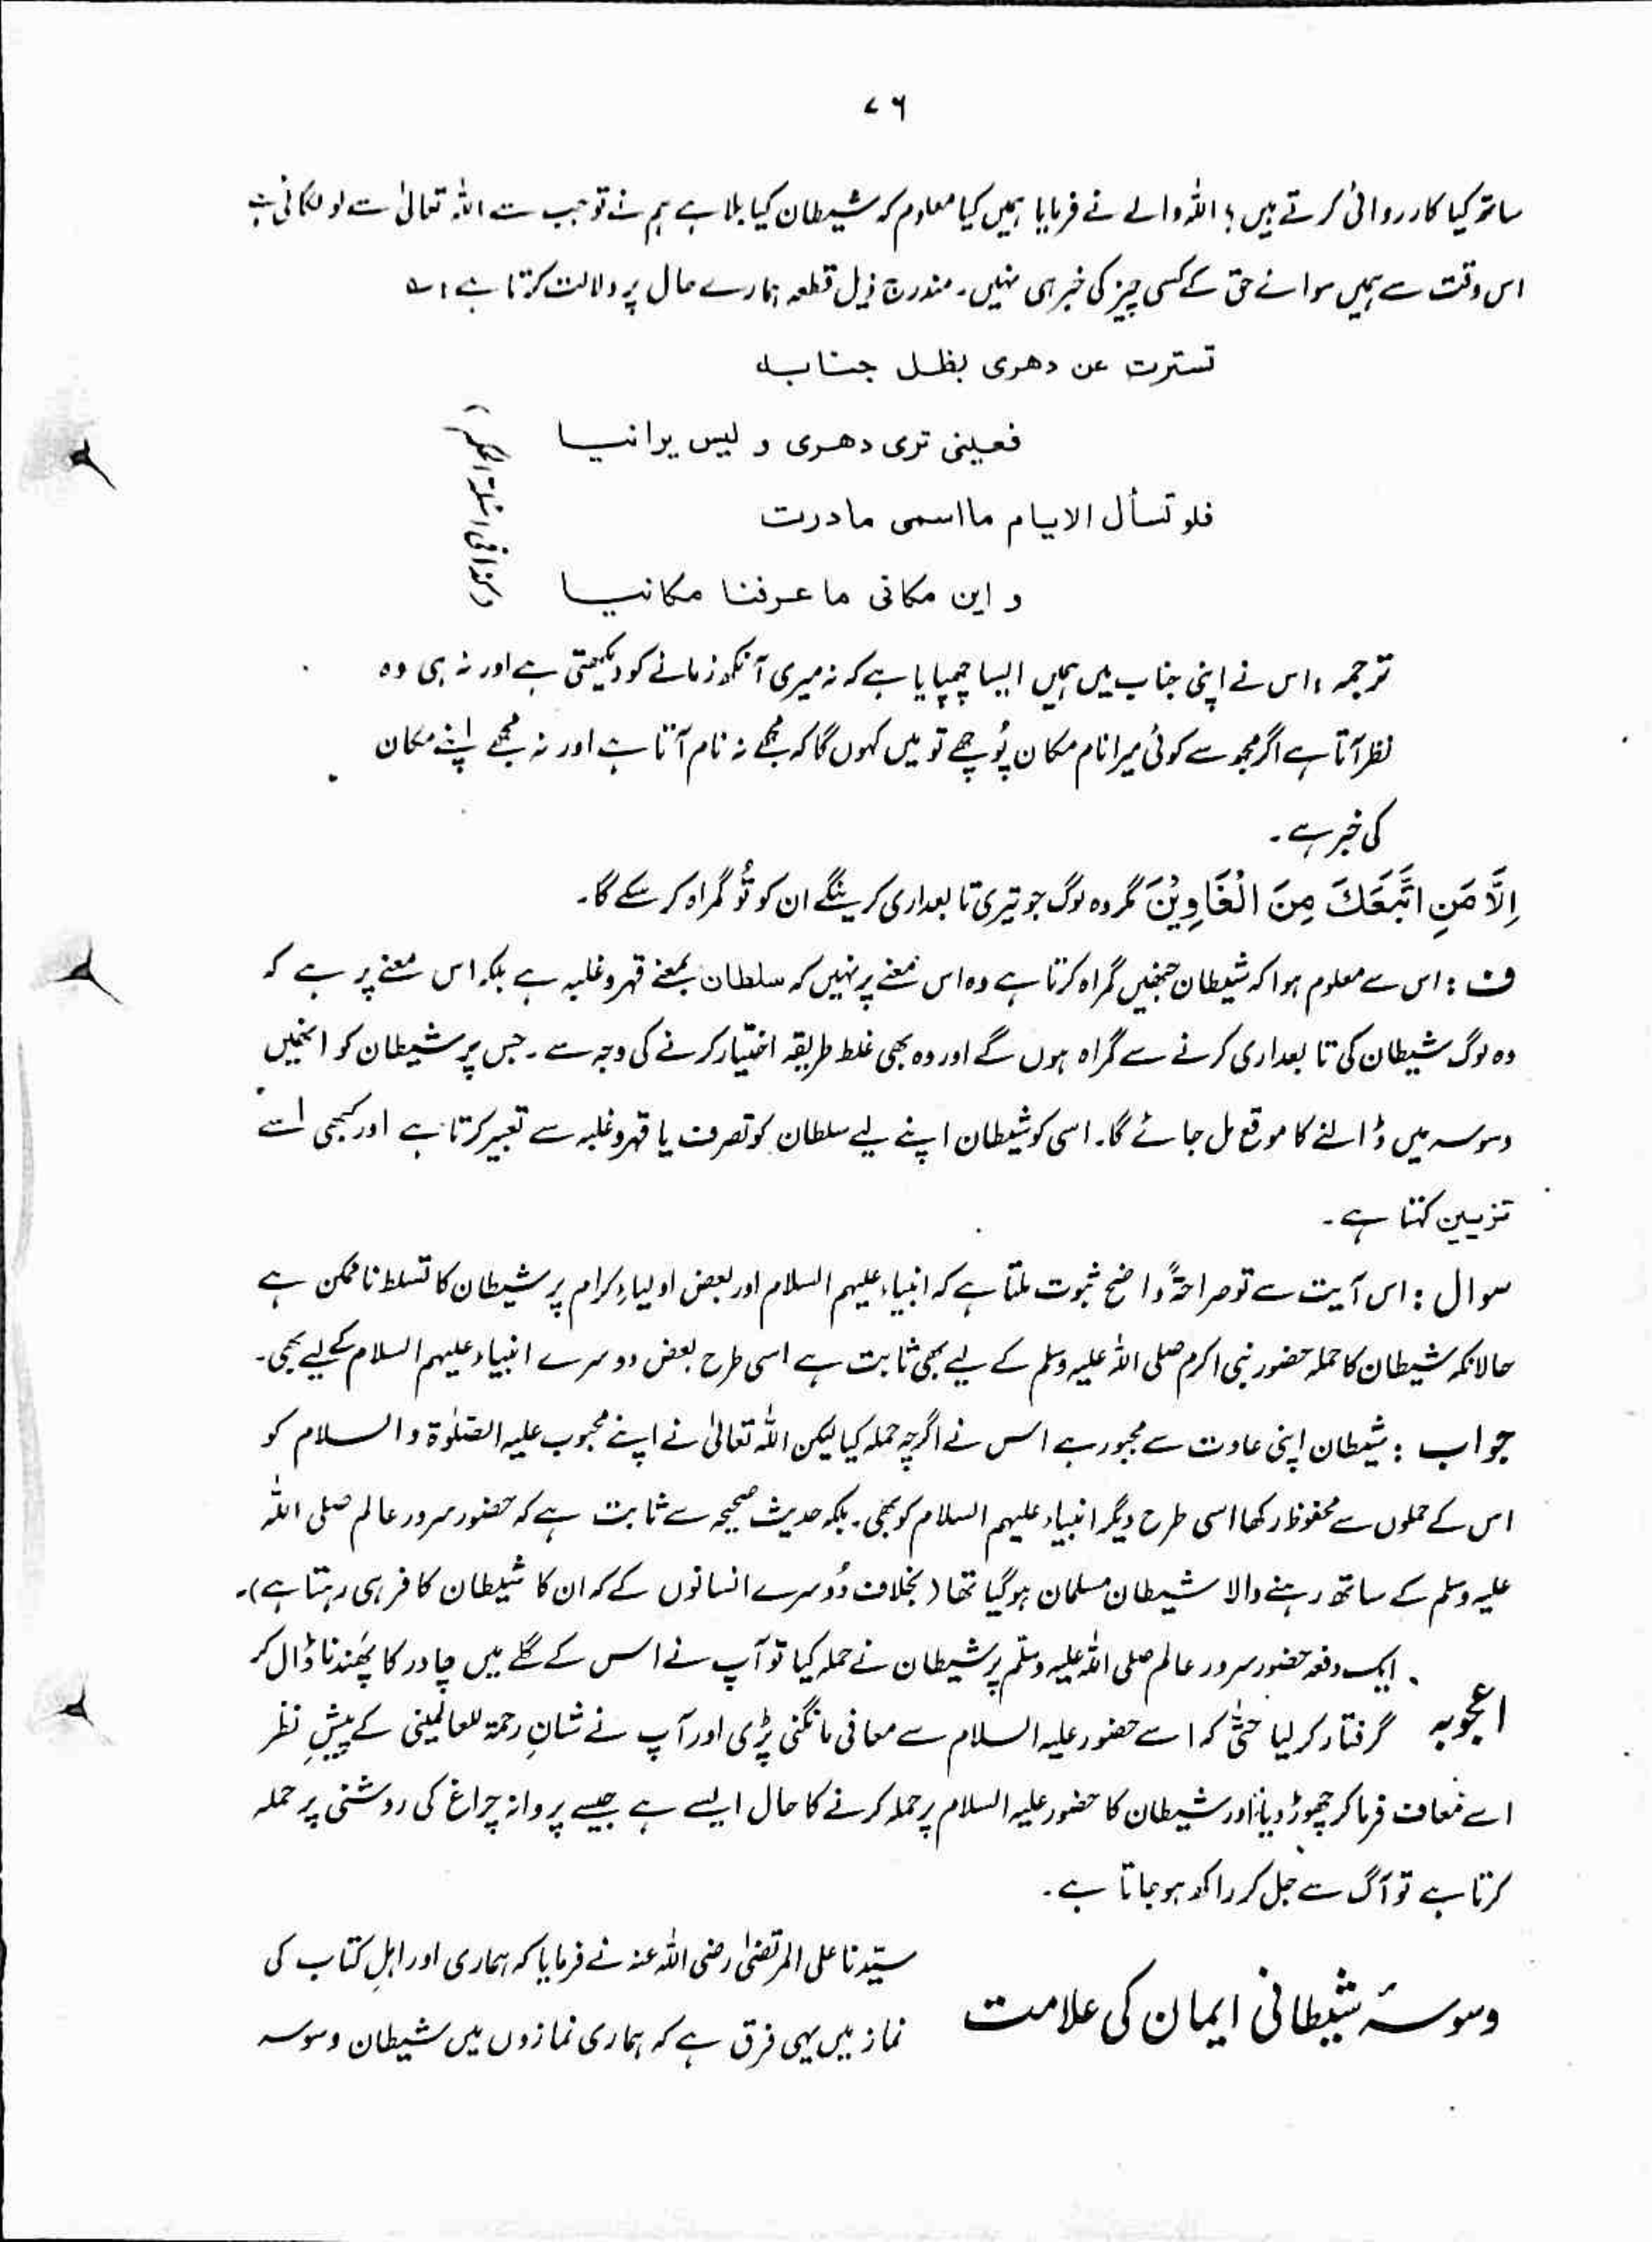 ۷۶
ساتھ کیا کارروائی کرتے ہیں؟ اللہ والے نے فرمایا ہمیں کیا معلوم کہ شیطان کیا بلا ہے ہم نے تو جب سے اللہ تعالیٰ سے لو لگائی ہے
اس وقت سے ہمیں سوائے حق کے کسی چیز کی خبر ہی نہیں۔ مندرج ذیل قطعہ ہمارے حال پر دلالت کرتا ہے :؎
تسترت عن دھری بظل جنابہ
فعینی تری دھری و لیس یرانیا
فلو تسأل الایام ما اسمی مادرت
و این مکانی ما عرفنا مکانیا
ترجمہ : اس نے اپنی جناب میں ہمیں ایسا چھپایا ہے کہ نہ میری آنکھ زمانے کو دیکھتی ہے اور نہ ہی وہ
نظر آتا ہے اگر مجھ سے کوئی میرا نام مکان پُوچھے تو میں کہوں گا کہ مجھے نہ نام آتا ہے اور نہ مجھے اپنے مکان
کی خبر ہے۔
اِلَّا مَنِ اتَّبَعَكَ مِنَ الْغَاوِیْنَ مگر وہ لوگ جو تیری تابعداری کرینگے ان کو تُو گمراہ کر سکے گا۔
ف : اس سے معلوم ہوا کہ شیطان جنھیں گمراہ کرتا ہے وہ اس معنے پر نہیں کہ سلطان بمعنے قہر و غلبہ ہے بلکہ اس معنے پر ہے کہ
وہ لوگ شیطان کی تابعداری کرنے سے گمراہ ہوں گے اور وہ بھی غلط طریقہ اختیار کرنے کی وجہ سے۔ جس پر شیطان کو انھیں
وسوسہ میں ڈالنے کا موقع مل جائے گا۔ اسی کو شیطان اپنے لیے سلطان کو تصرف یا قہر و غلبہ سے تعبیر کرتا ہے اور کبھی اسے
تزیین کہتا ہے۔
سوال : اس آیت سے تو صراحۃً واضح ثبوت ملتا ہے کہ انبیاء علیہم السلام اور بعض اولیاءِ کرام پر شیطان کا تسلط ناممکن ہے
حالانکہ شیطان کا حملہ حضور نبی اکرم صلی اللہ علیہ وسلم کے لیے بھی ثابت ہے اسی طرح بعض دوسرے انبیاء علیہم السلام کے لیے بھی۔
جواب : شیطان اپنی عادت سے مجبور ہے اس نے اگرچہ حملہ کیا لیکن اللہ تعالیٰ نے اپنے محبوب علیہ الصّلوٰۃ و السلام کو
اس کے حملوں سے محفوظ رکھا اسی طرح دیگر انبیاء علیہم السلام کو بھی۔ بلکہ حدیث صحیحہ سے ثابت ہے کہ حضور سرور عالم صلی اللہ
علیہ وسلم کے ساتھ رہنے والا شیطان مسلمان ہو گیا تھا (بخلاف دُوسرے انسانوں کے کہ ان کا شیطان کافر ہی رہتا ہے)۔
اعجوبہ
ایک دفعہ حضور سرور عالم صلی اللہ علیہ وسلّم پر شیطان نے حملہ کیا تو آپ نے اس کے گلے میں چادر کا پھندنا ڈال کر
گرفتار کر لیا حتیٰ کہ اسے حضور علیہ السلام سے معافی مانگنی پڑی اور آپ نے شانِ رحمۃ للعالمینی کے پیشِ نظر
اسے معاف فرما کر چھوڑ دیا اور شیطان کا حضور علیہ السلام پر حملہ کرنے کا حال ایسے ہے جیسے پروانہ چراغ کی روشنی پر حملہ
کرتا ہے تو آگ سے جل کر راکھ ہو جاتا ہے۔
وسوسۂ شیطانی ایمان کی علامت
سیّدنا علی المرتضیٰ رضی اللہ عنہ نے فرمایا کہ ہماری اور اہلِ کتاب کی
نماز میں یہی فرق ہے کہ ہماری نمازوں میں شیطان وسوسہ